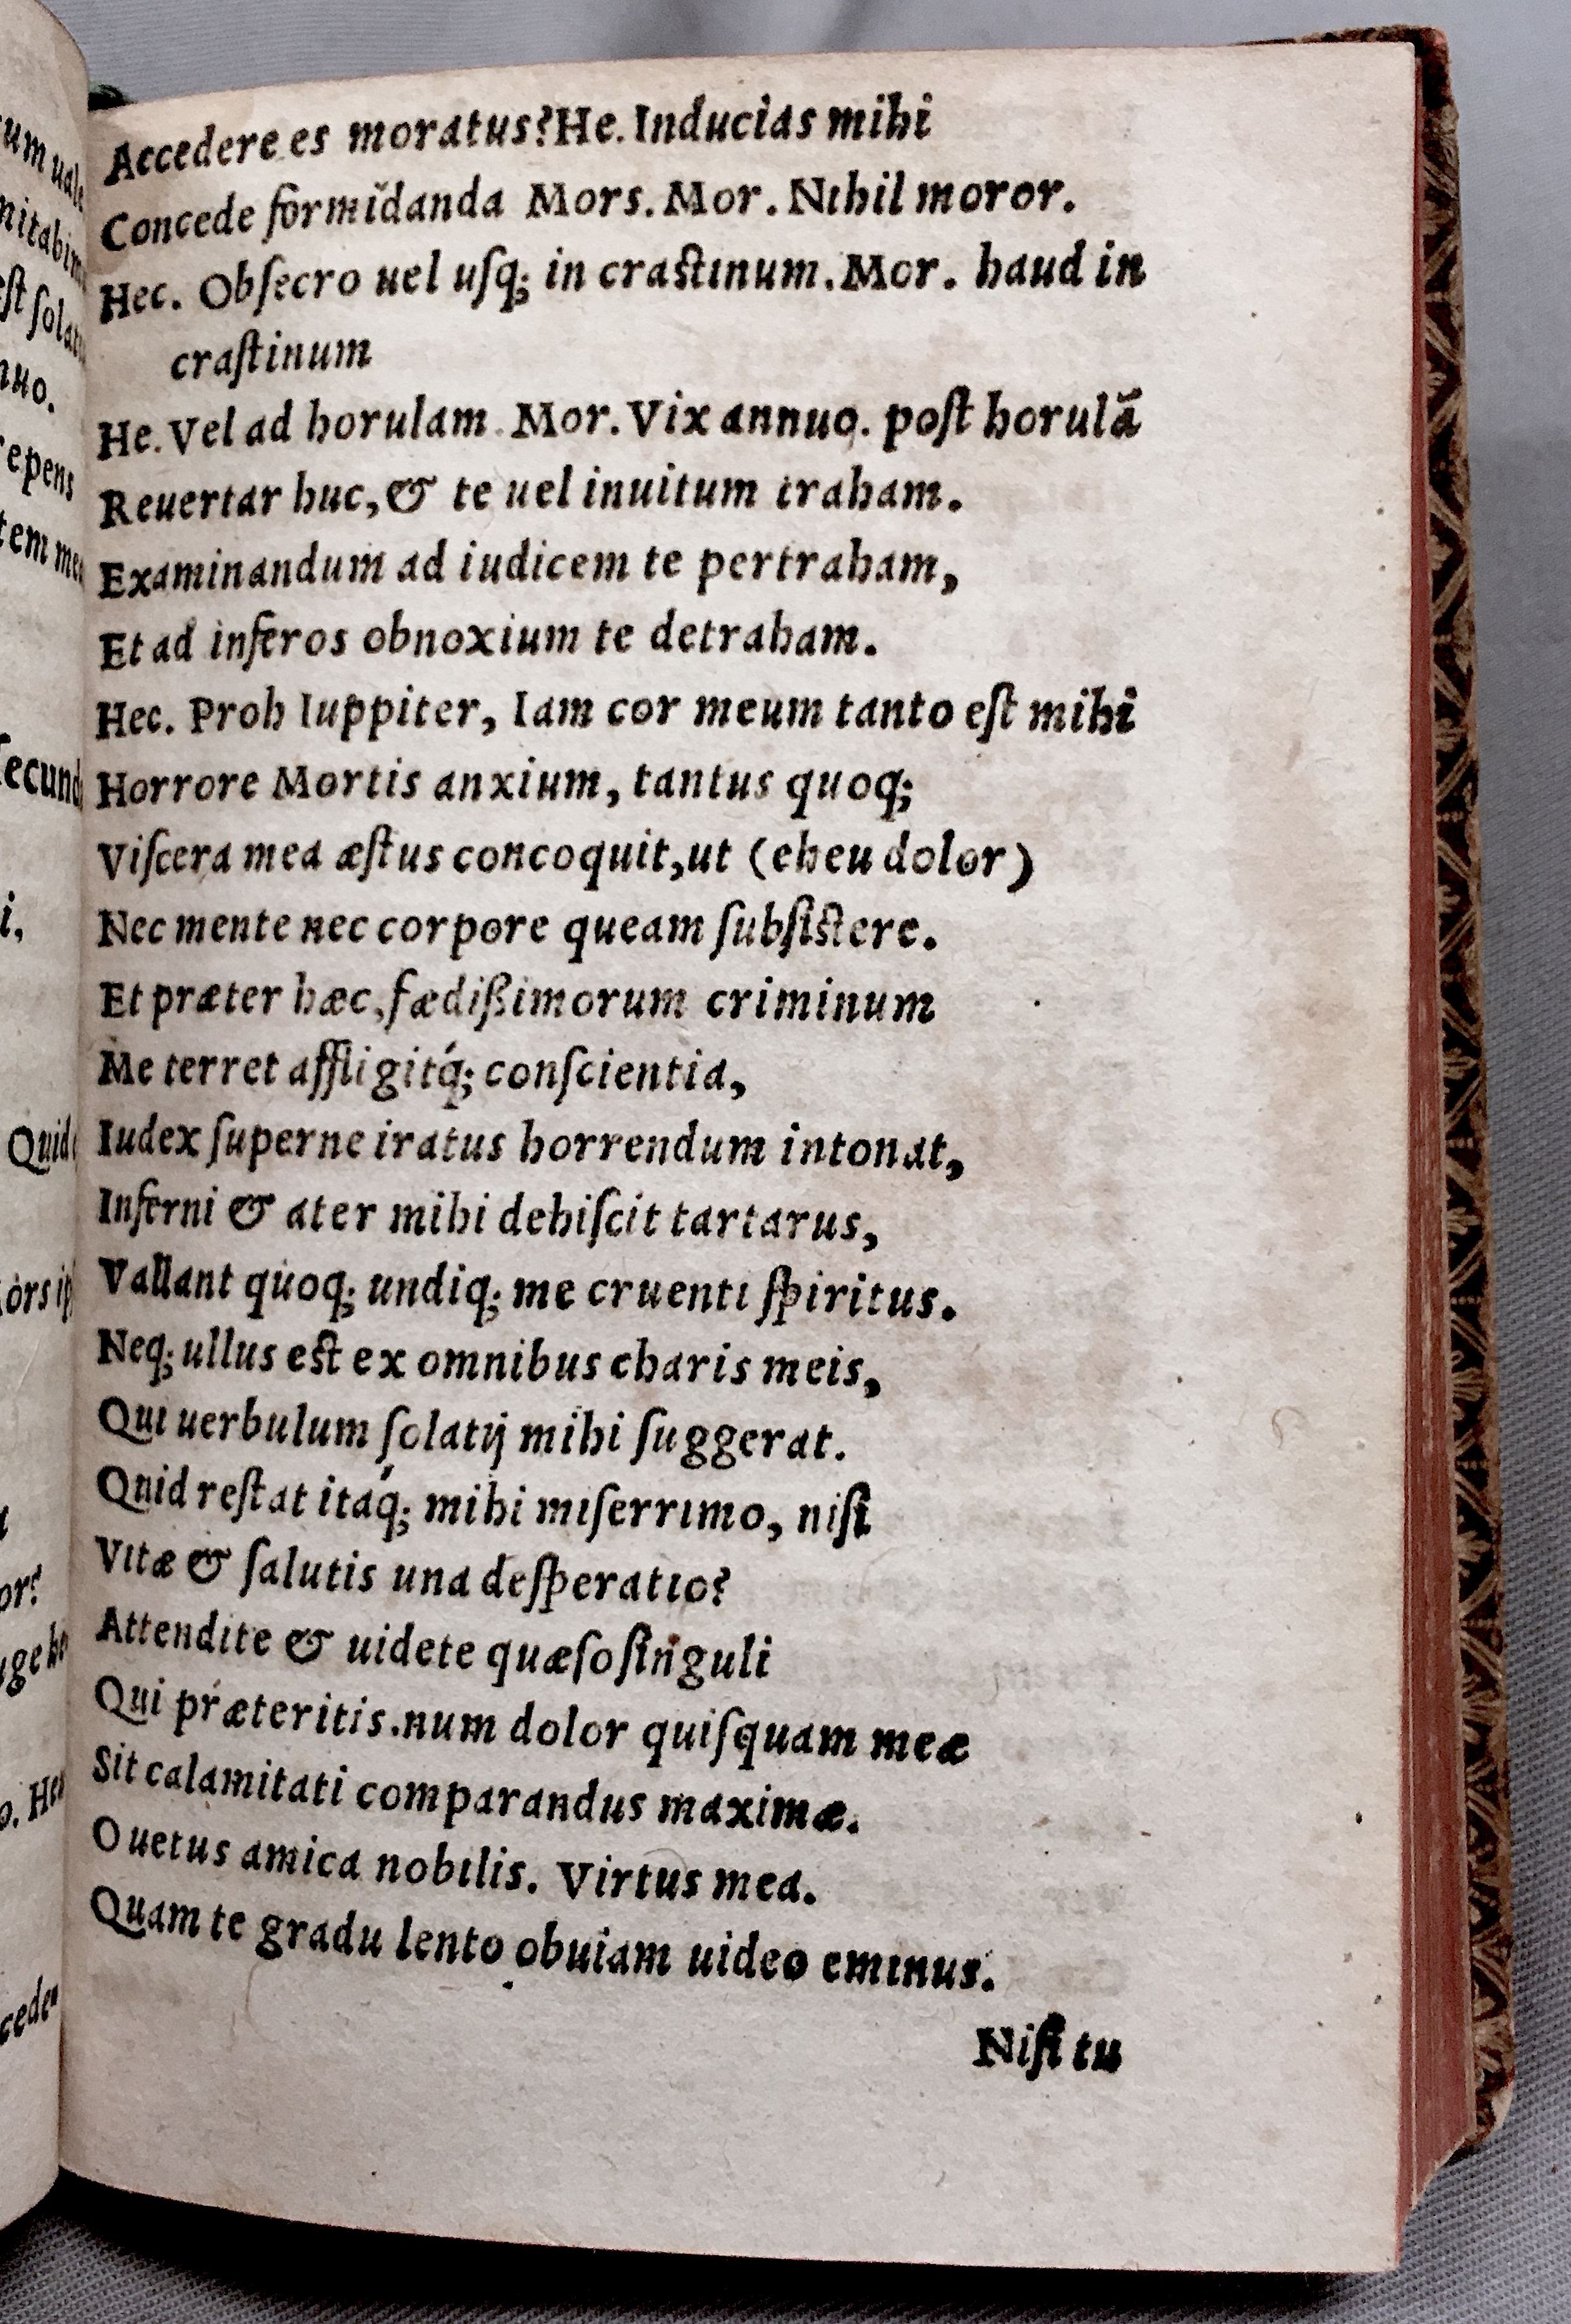 Accedere es moratus? He. Inducias mihi
Concede formĭdanda Mors. Mor. Nihil moror.
Hec. Obſecro uel uſq; in craſtinum. Mor. haud in
craſtinum
He. Vel ad horulam. Mor. Vix annuo. poſt horulã
Reuertar huc, & te uel inuitum traham.
Examinandum ad iudicem te pertraham,
Et ad inferos obnoxium te detraham.
Hec. Proh Iuppiter, Iam cor meum tanto eſt mihi
Horrore Mortis anxium, tantus quoq;
Viſcera mea æſtus concoquit, ut (eheu dolor)
Nec mente nec corpore queam ſubſiſtere.
Et præter hæc, fædißimorum criminum
Me terret affligitq́; conſcientia,
Iudex ſuperne iratus horrendum intonat,
Inferni & ater mihi dehiſcit tartarus,
Vallant quoq; undiq; me cruenti ſpiritus.
Neq; ullus eſt ex omnibus charis meis,
Qui uerbulum ſolatij mihi ſuggerat.
Quid reſtat itaq́; mihi miſerrimo, niſi
Vitæ & ſalutis una deſperatio?
Attendite & uidete quæſo ſinguli
Qui præteritis. num dolor quiſquam meæ
Sit calamitati comparandus maximæ.
O uetus amica nobilis. Virtus mea.
Quam te gradu lento obuiam uideo eminus.
Niſi tu